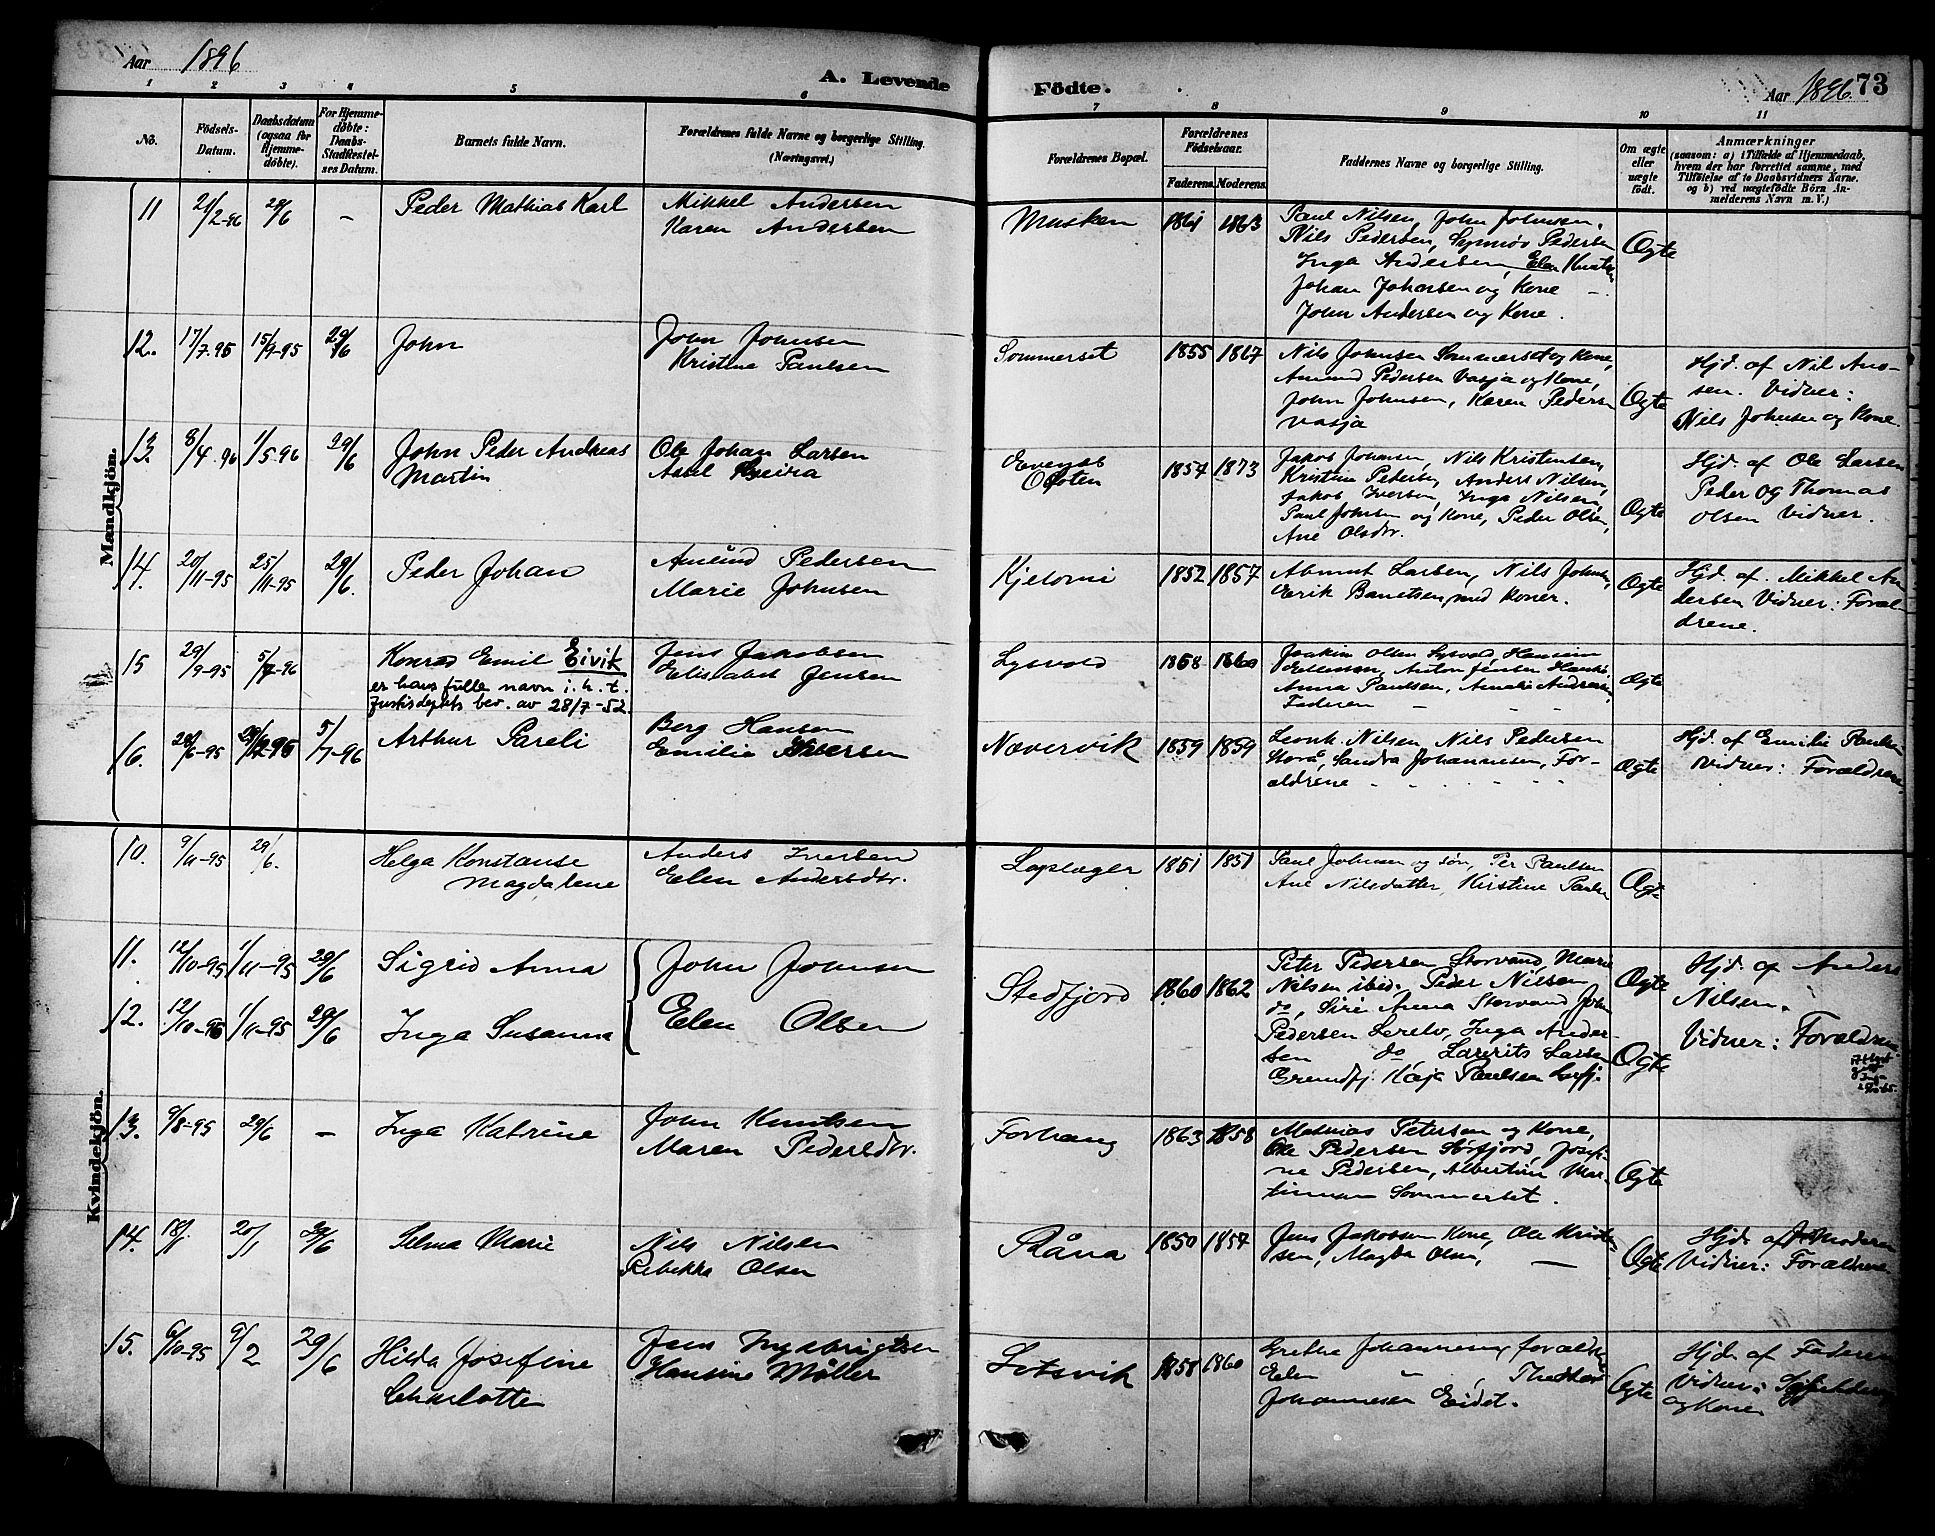 Aar 1896
A. Levende
Födte.
Aar 1896. 73
1 2 3 4 5 6 7 8 9 10 11
No.
Födsels-
Datum.
Daabsdatum
(ogsaa for
Hjemme-
döbte).
For Hjemme-
döbte:
Daabs-
Stadfæstel-
ses Datum.
Barnets fulde Navn.
Forældrenes fulde Navne og borgerlige Stilling.
(Næringsvei.)
Forældrenes Bopæl.
Forældrenes
Födselsaar.
Faderens. Moderens.
Faddernes Navne og borgerlige Stilling.
Om ægte
eller
uægte
födt.
Anmærkninger
(saasom: a) i Tilfælde af Hjemmedaab,
hvem der har forrettet samme, med
Tilföielse af to Daabsvidners Navne,
og b) ved uægtefödte Börn An-
melderens Navn m. V.)
Mandkjön.
11 21/2-96 29/6 - Peder Mathias Karl
Mikkel Andersen
Karen Andersen
Musken 1861 1863
Paul Nilsen, John Johnsen,
Nils Pedersen, Synnöv Pedersen
Inga Andersen, Elen Knuts
Johan Johansen og Kone -
John Andersen og Kone.
Ægte
12. 17/7.95 15/9-95 29/6 John
John Johnsen
Kristine Paulsen
Sommerset 1855 1867
Nils Johnsen Sommerset og Kone,
Amund Pedersen Vasja og Kone,
John Johnsen, Karen Pedersen
Vasja
Ægte
Hjd. af Nil
sen. Vidner:
Nils Johnsen og Kone.
13. 8/4 96 1/5-96 29/6 John Peder Andreas
Martin
Ole Johan Larsen
Evenes
Ofoten 1854 1873
Jakob Johansen, Nils Kristensen,
Kristine Pedersen, Anders Nilsen,
Jakob Iversen, Inga Nilsen,
Paul Johnsen og Kone, Peder Olsen,
Ane Olsdtr.
Ægte
Hjd. af Ole Larsen
Peder og Thomas
Olsen Vidner.
14. 20/11-95 25/11-95 29/6. Peder Johan
Amund Pedersen
Marie Johnsen
1852 1857
Larsen, Nils Johnsen,
Erik med Koner.
Ægte
Hjd. af. Mikkel An
dersen Vidner: Foræl
drene.
15 29/9-95 5/7-96 Konrad Emil Eivik
er hans fulle navn i. h. t.
Justisdepts bev. av 28/7-52.
Jens Jakobsen
Elisabet Jensen
Lysvold 1858 1860
Joakim Olsen Lysvold
Anton Jensen
Anna Paulsen, Andreasen,
Faderen - - -
Ægte
16. 6-95 5/7-96 Arthur Pareli
Berg Hansen
Emilie
Nævervik 1859 1859
Nilsen, Nils Pedersen
Storå, Sandra Johannesen, For-
ældrene - - - -
Ægte
Hjd. af Emilie
Vidner: Forældrene,
Kvindekjön.
10. 9/11-95 29/6. Helga Konstanse
Magdalene
Anders Iversen
Elen Andersdtr.
1861 1851
Paul Johnsen og søn, Per Paulsen
Ane Nilsdatter, Kirstine
Ægt
11. 12/10-95 1/11-95 29/6 Sigrid Anna
John Johnsen
Elen Olsen
Stedfjord 1860 1862
Peter Pedersen Storvand, Marie
Nilsen ibid, Peder Nilsen
do, Siri Anna Storvand, John
Pedersen Inga Ander-
sen do Larsen
Kaja Paulsen
Ægte
Hjd. af Anders
Nilsen.
Vidner: Forældrene
12. 12/10-95 1/11-95 29/6 Inga Susanna
Ægte
13. 9/8-95 29/6 - Inga Katrine
John Knutsen
Maren Pedersdtr.
Forhang 1863 1858
Mathias Petersen og Kone,
Ole Pedersen Sörfjord, Josefi-
ne Pedersen, Albertine Mar-
Sommerset.
Ægte
14. 18/ 20/1 29/6 Selma Marie
Nils Nilsen
Rebekka Olsen
Råna 1850 1854
Jens Jakobsen Kone, Ole Kristen-
sen, Magda Olsen, -
Ægte
Hjd. af Moderen
Vidner: Forældrene.
15. 6/10-95 9/2 29/6 Hilda Josefine
Charlotte
Jens Ingebrigtsen
Hansine Möller
Lotsvik 1858 1860
Grethe forældre
Elen "
Johannesen Eidet.
Ægte
Hjd. af Faderen
Vidner:
og Kone